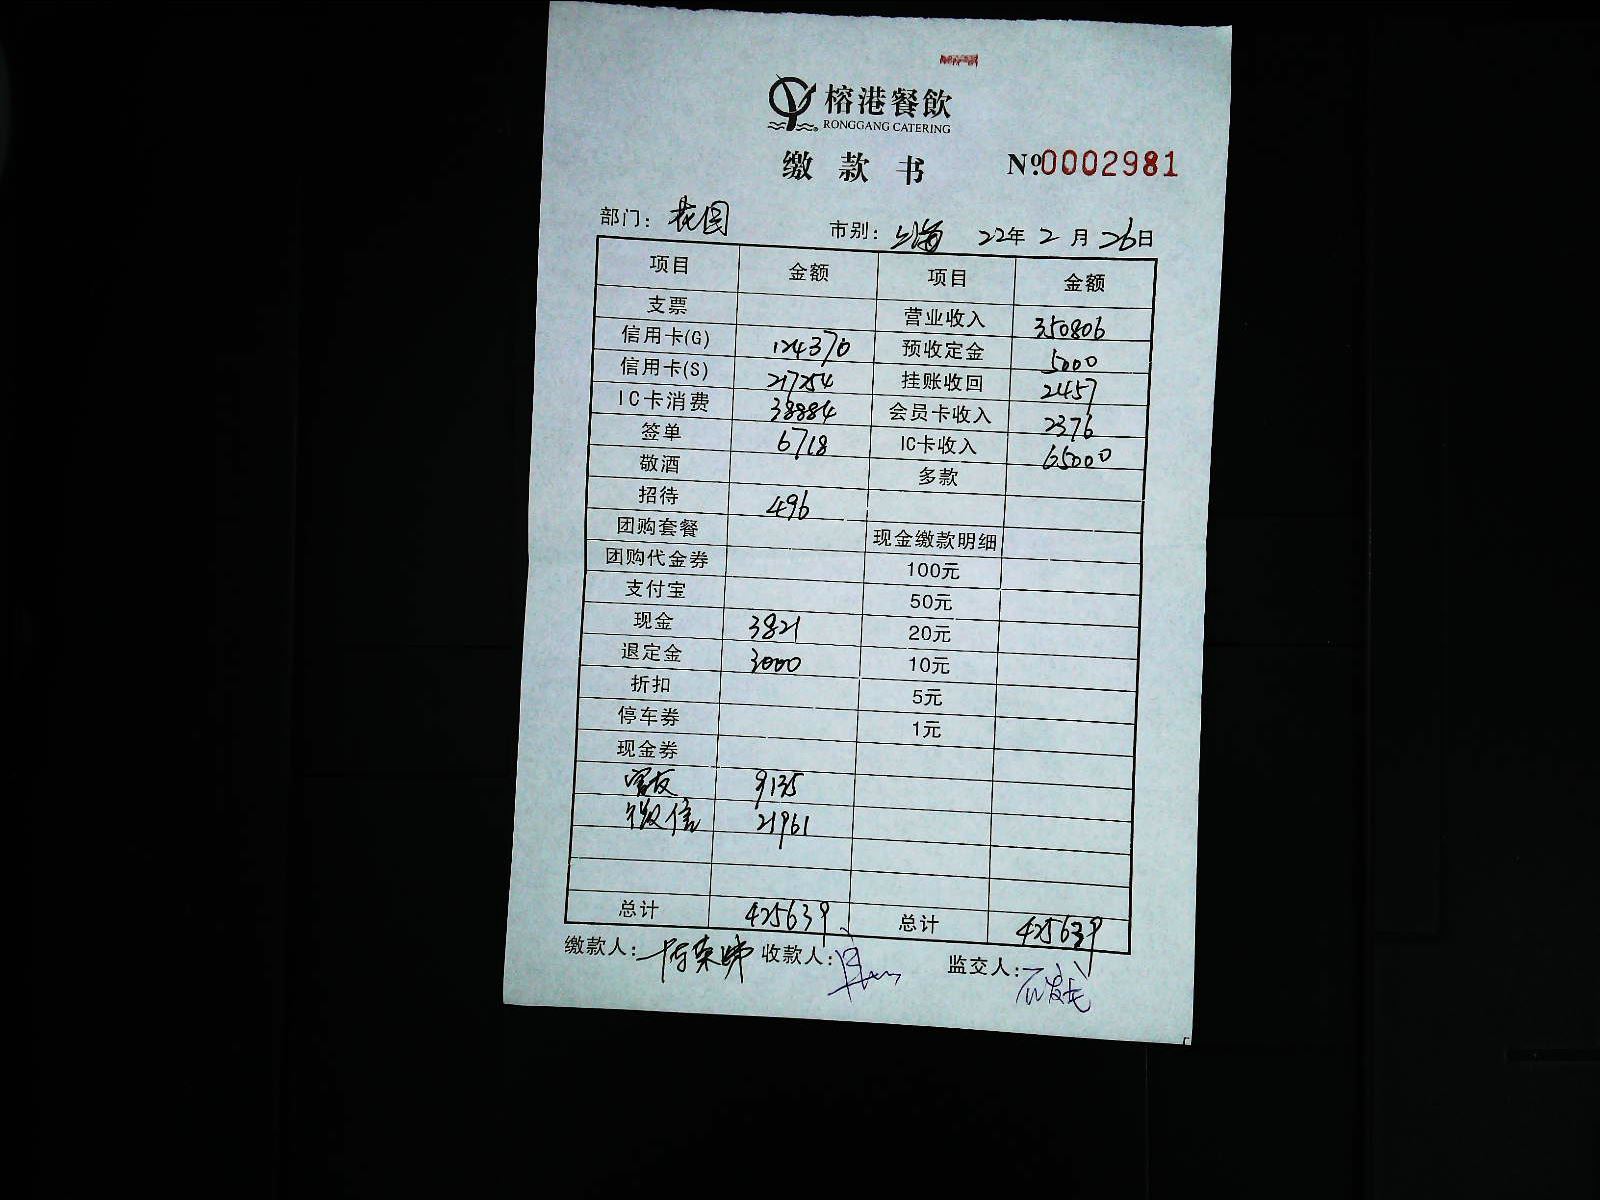 榕港餐飲
RONGGANG CATERING
缴款书 №0002981
部门：花园 市别：上海 22年2月26日
项目 金额 项目 金额
支票 营业收入 350806
信用卡(G) 124370 预收定金 5000
信用卡(S) 217254 挂账收回 2457
IC卡消费 38884 会员卡收入 2376
签单 6718 IC卡收入 65000
敬酒 多款
招待 496
团购套餐 现金缴款明细
团购代金券 100元
支付宝 50元
现金 3821 20元
退定金 3000 10元
折扣 5元
停车券 1元
现金券
富友 9135
微信 21961
总计 425639 总计 425639
缴款人： 收款人： 监交人：